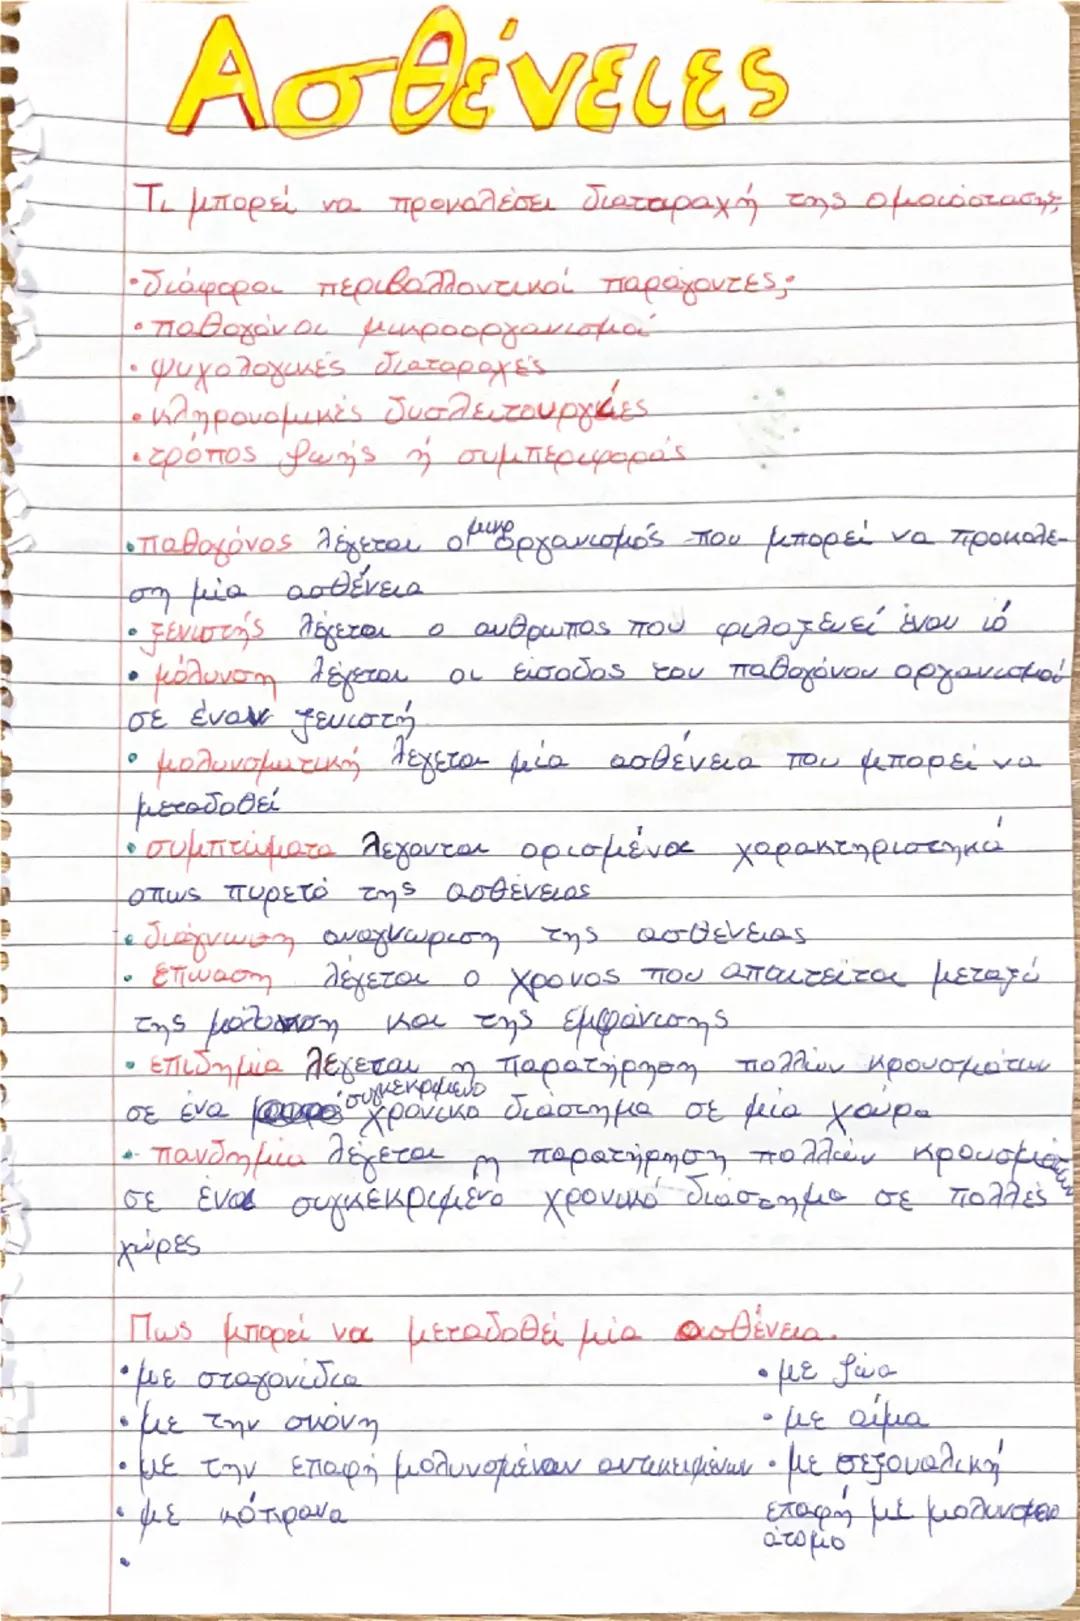 Ασθένειες
Τι μπορεί να προκαλέσει διαταραχή της ομοιόστασης;
•διάφοροι περιβαλλοντικοί παράγοντες;
•παθογόνοι μικροοργανισμοί
•ψυχολογικές διαταραχές
•κληρονομικές δυσλειτουργίες
•τρόπος ζωής ή συμπεριφοράς
•παθογόνος λέγεται ο μικροοργανισμός που μπορεί να προκαλέ-
ση μία ασθένεια
•ξενιστής λέγεται ο ανθρωπος που φιλοξενεί έναν ιό
•μόλυνση λέγεται οι είσοδος του παθογόνου οργανισμού
σε έναν ξενιστή
•μολυνσματική λέγεται μία ασθένεια που μπορεί να
μεταδοθεί
•συμπτώματα λεγονται ορισμένα χαρακτηριστηκά
οπως πυρετό της ασθένειας
•διάγνωση αναγνωριση της ασθένειας
•επώαση λέγεται ο χρονος που απαιτείται μεταξύ
της μόλυνση και της εμφάνισης
•επιδημία λέγεται η παρατήρηση πολλών κρουσμάτων
σε ένα συγκεκριμένο χρονικό διάστημα σε μία χώρα
•πανδημία λέγεται η παρατήρηση πολλών κρουσμάτων
σε ένα συγκεκριμένο χρονικό διάστημα σε πολλές
χώρες
Πως μπορεί να μεταδοθεί μία ασθένεια.
•με σταγονίδια
•με την σκόνη
•με την επαφή μολυνσμέναν αντικειμένων
•με κόπρανα
•με ζώα
•με αίμα
•με σεξουαλική
επαφή με μολυνσμενο
άτομο